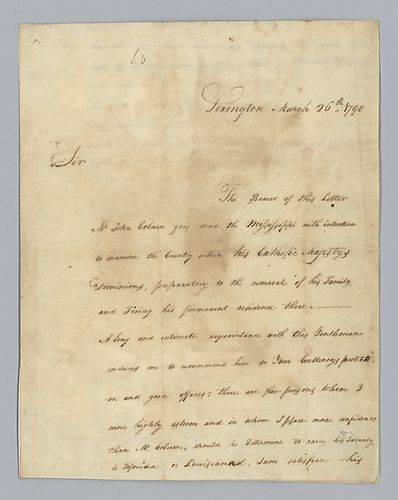 10
Lexington March 26th 1790
Sir
The Bearer of this Letter
Mr John Coburn goes down the Mississippi with intention
to examine the Country within his Catholic Majestys
Dominions, preparatory to the removal of his Family
and Fixing his permanent residence there.
A long and intimate acquaintance with this Gentleman
induces me to recommend him to Your Excellencys protecti-
on and good offices: there are few persons whom I
more highly esteem and in whom I place more confidence
than Mr Coburn; should he Determine to carry his Family
to Florida or Louisiana, I am satisfied his